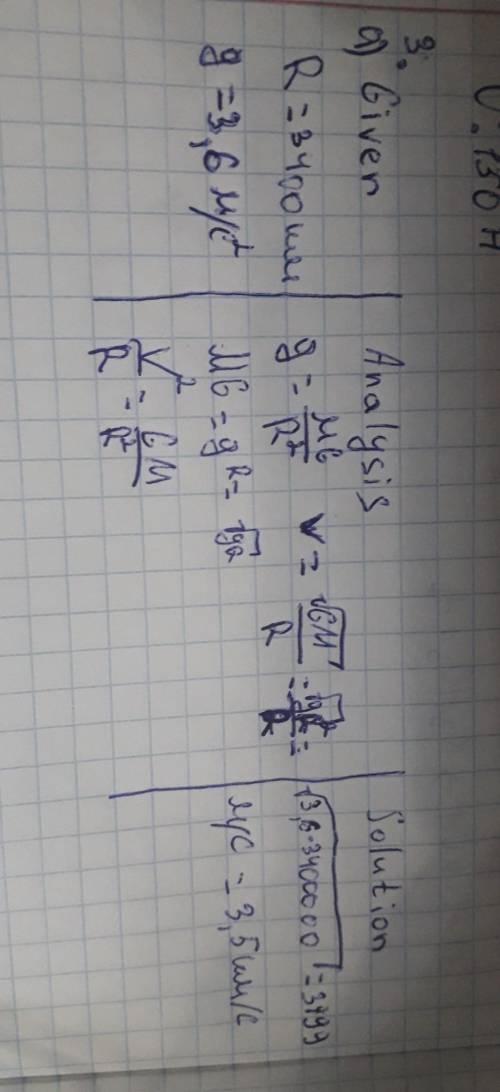 0.130 Н
3.
a) Given
R = 3400 км
g = 3,6 м/с²
Analysis
g = MG/R² V = √GM/R = √gR²/R =
MG = gR² = √gR
V²/R = GM/R²
Solution
√3,6·3400000 = 3499
м/с = 3,5 км/с